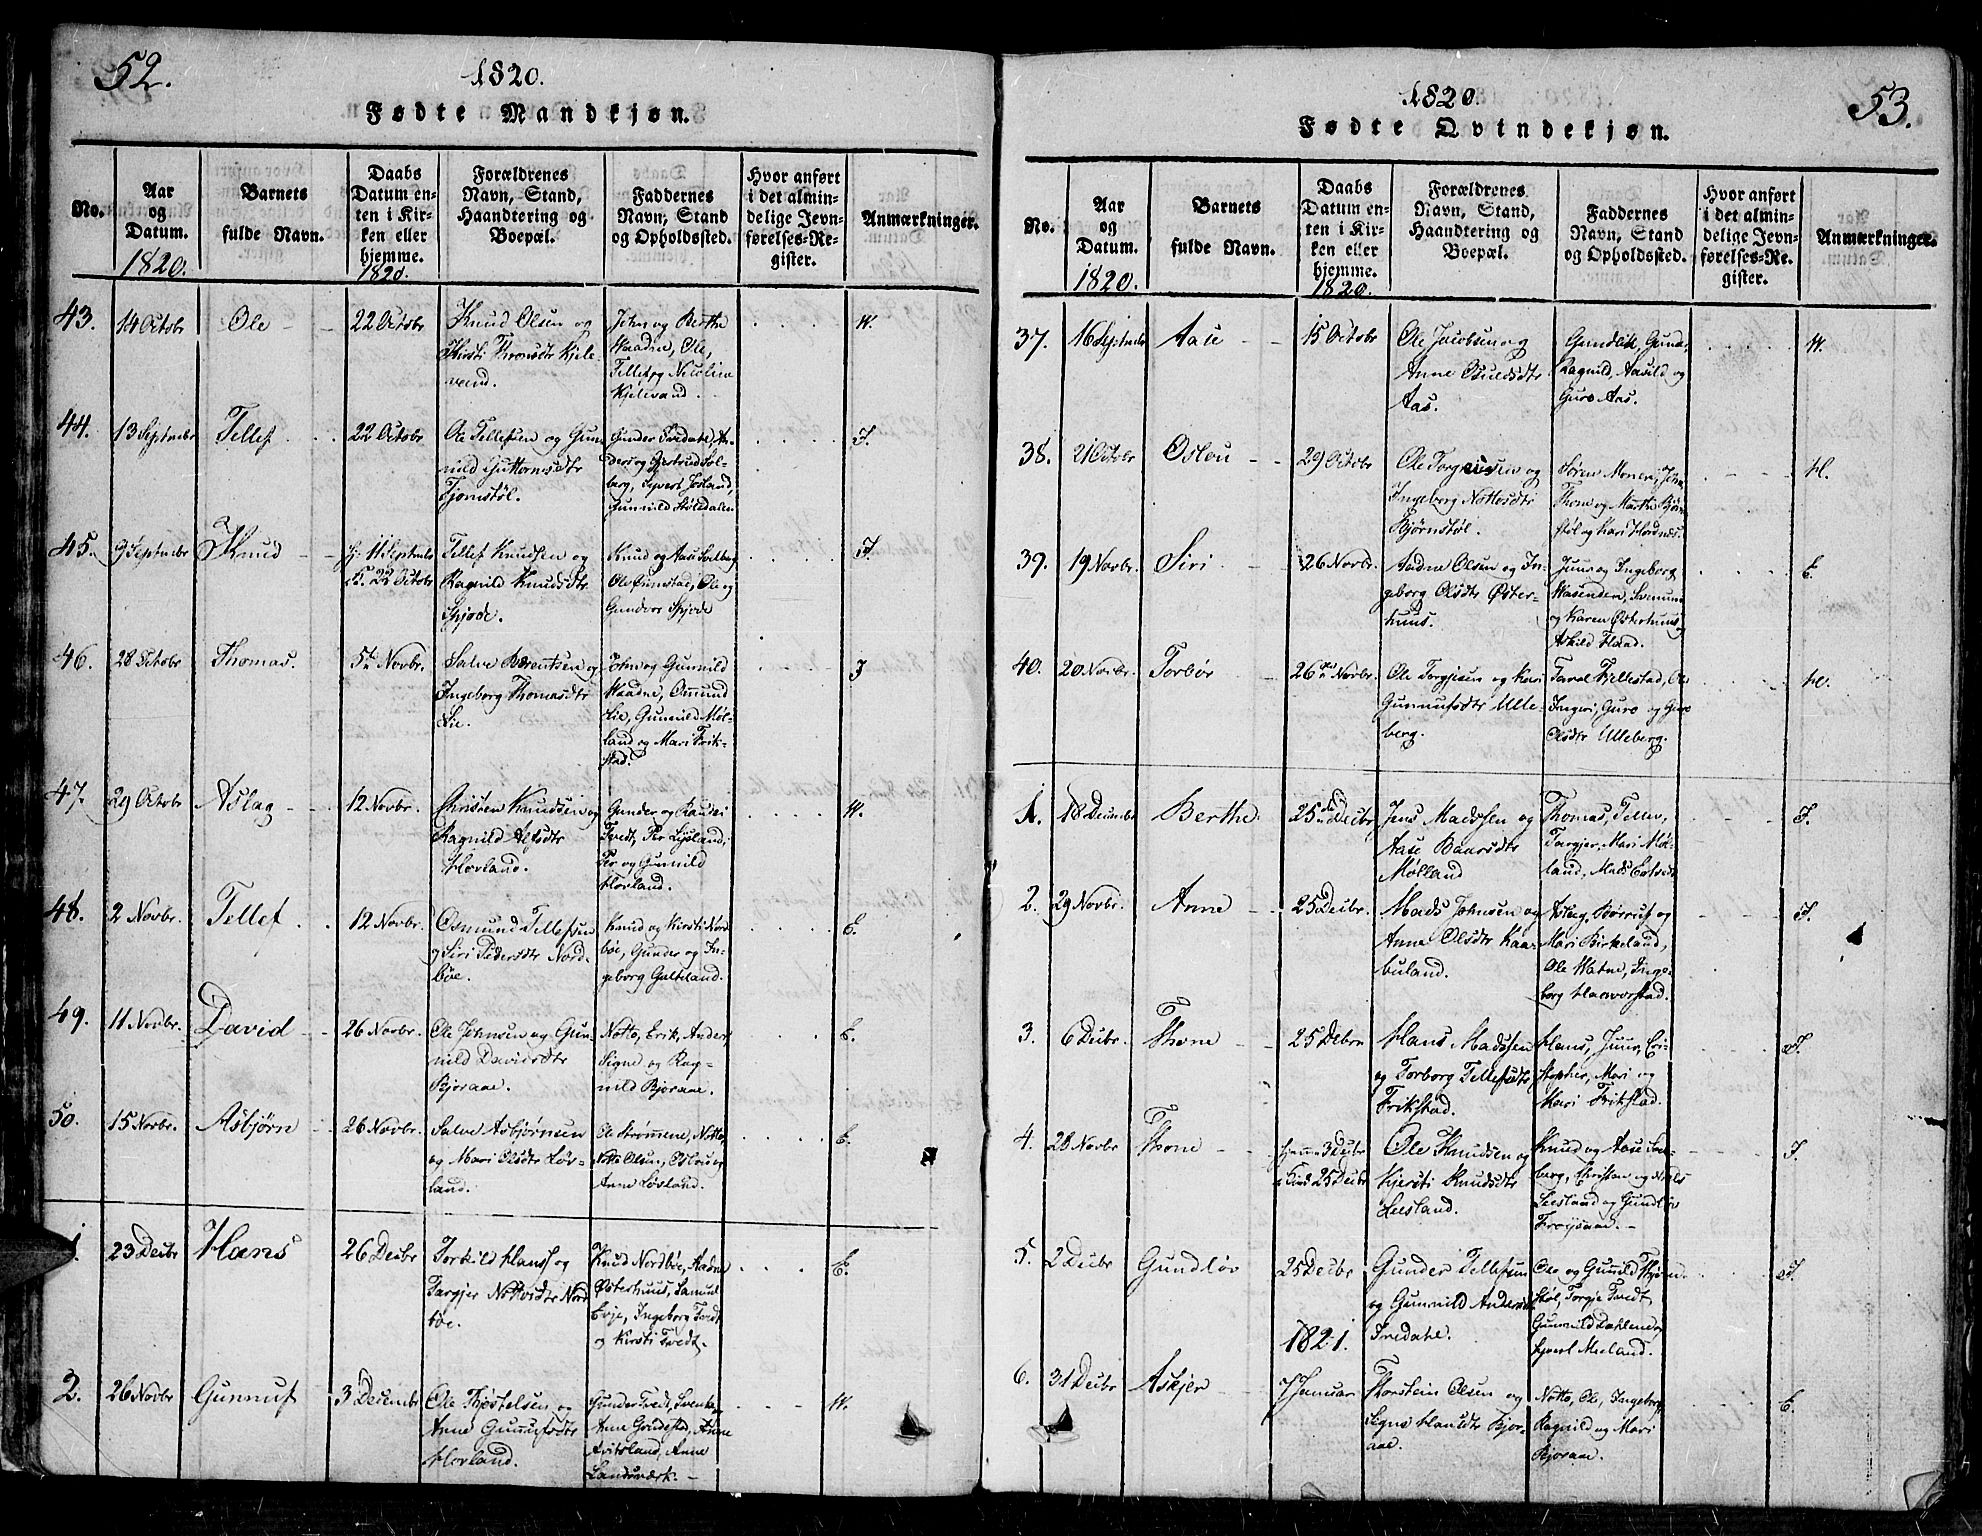 52.
1820.
Fødte Mandkjøn.
No.
Aar
og
Datum.
1820.
Barnets
fulde Navn.
Daabs
Datum en-
ten i Kir-
ken eller
hjemme.
1820.
Forældrenes
Navn, Stand,
Haandtering og
Boepæl.
Faddernes
Navn, Stand
og Opholdssted.
Hvor anført
i det almin-
delige Jevn-
førelses-Re-
gister.
Anmærkninger.
43.
14 Octobr
Ole
22 Octobr
Knud Olsen og
Kirsti Thomsdtr Kjele-
vand.
John og Berthe
Waadne, Ole,
Tellef og Nicoline
Kjelevand.
H.
44.
13 Septmbr
Tellef
22 Octobr
Ole Tellefsen og Gun-
nild Guttormsdtr
Fjomstøl.
Gunder Tvedale, An-
ders og Gjertrud Sol-
berg, Syvert Josland,
Gunnild Støledalen
I.
45.
9 Septmbr
Knud
hj: 11 Septmbr
K. 22 Octobr
Tellef Knudsen og
Ragnild Knudsdtr
Spjode.
Knud og Aase Solberg
Ole Junstad, Ole og
Gundvor Spjode
I.
46.
28 Octobr
Thomas
5te Novbr.
Salve Berentsen og
Ingeborg Thomasdtr
Lie.
John og Gunnild
Waadne, Osmund
Lie, Gunnild Møl-
land og Mari Frik-
stad.
I
47.
29 Octobr
Aslag
12 Novbr.
Christen Knudsen og
Ragnild Alfsdtr
Hovland.
Gunder og Randei
Tvedt, Per Lysland,
Per og Gunnild
Hovland.
H.
48.
2 Novbr.
Tellef
12 Novbr.
Osmund Tellefsen
og Siri Pedersdtr Nord-
bøe.
Knud og Kirsti Nord-
bøe, Gunder og In-
geborg Gulteland.
E.
49.
11 Novbr.
David
26 Novbr.
Ole Johnsen og Gun-
nild Davidsdtr
Bjoraae.
Notto, Erik, Anders
Signe og Rag-
nild Bjoraae.
E.
50.
15 Novbr.
Asbjørn
26 Novbr.
Salve Asbjørnsen
og Mari Olsdtr Løv-
land.
Ole Strømene, Notto,
Notto Olsen, Oslou og
Anne Løvland.
E.
1.
23 Decbr
Hans
26 Decbr
Torkild Hanss og
Targjer Nottosdtr Nord-
bøe.
Knud Nordbøe, Aadne
Østerhuus, Samuel
Evje, Ingeborg Tvedt
og Kirsti Tvedt.
E.
2.
26 Novbr
Gunnuf
3 Decembr
Ole Kjøstelsen og
Anne Gunnufsdtr
Hovland.
Gunder Tvedt, Svenke,
Anne Anne
Avitsland, Anne
Landsværk.
H.
53.
1820.
Fødte Qvindekjøn.
No.
Aar
og
Datum.
1820.
Barnets
fulde Navn.
Daabs
Datum en-
ten i Kir-
ken eller
hjemme.
1820.
Forældrenes
Navn, Stand,
Haandtering og
Boepæl.
Faddernes
Navn, Stand
og Opholdssted.
Hvor anført
i det almin-
delige Jevn-
førelses-Re-
gister.
Anmærkninger.
37.
16 Septmbr
Aase
15 Octobr
Ole Jacobsen og
Anne Osuldsdtr
Aas.
Gundlik, Gunn,
Ragnild, Aasild og
Guro Aas.
H.
38.
21 Octobr
Oslou
29 Octobr
Ole Torgiusen og
Ingeborg Nottosdtr
Bjørnstøl.
Søren Monen, John,
Thone og Marthe Bjørn-
støl og Kari Hodnes.
H.
39.
19 Novbr.
Siri
26 Novbr.
Aadne Olsen og In-
geborg Olsdtr Øster-
huus.
Juur og Ingeborg
Wasenden, Svenum
og Karen Østerhuus og
Askild Flaad.
E.
40.
20 Novbr.
Torbør
26de Novbr.
Ole Torgjusen og Kari
Gunnufsdtr Ulle-
berg.
Taral Kjellestad, Ole
Ingeri, Guro og Guro
Olsdtr Ulleberg.
H.
1.
18 Decmbr
Berthe
25de Decbr
Jens Madssen og
Aase Baarsdtr
Mølland
Thomas, Tellev,
Targjer, Mari Møl-
land, Mads
I.
2.
29 Novbr.
Anne
25 Decbr.
Mads Johnsen og
Anne Olsdtr Kaa-
buland.
Aslag, Børruf og
Mari Birkeland,
Ole Watne, Inge-
borg Haavorstad.
I.
3.
6 Decbr.
Thone
25 Debr
Hans Madssen
og Torborg Tellefsdtr
Frikstad.
Hans, Juur, Cri-
stopher, Mari og
Mari Frikstad.
I.
4.
28 Novbr
Thone
hjemme 3 Decbr
i Kirk 25 Decbr
Ole Knudsen og
Kjersti Knudsdtr
Leesland.
Knud og Aase Sol-
berg, Christen og Niels
Leesland og Gundlør
Frøysaae.
I.
5.
2 Decbr
Gundlør
25 Decbr
Gunder Tellefsen
og Gunnild Andersdtr
Tvedale.
Ole og Gunild Fjom-
støl, Torgje Tvedt,
Gunnild Dahlene og
Sjvert Meeland.
I.
1821.
6.
31 Decbr
Askjer
7 Januar
Thorstein Olsen og
Signe Hansdtr Bjor-
aae.
Notto, Ole, Ingeborg
Ragnild og Mari
Bjoraae.
E.